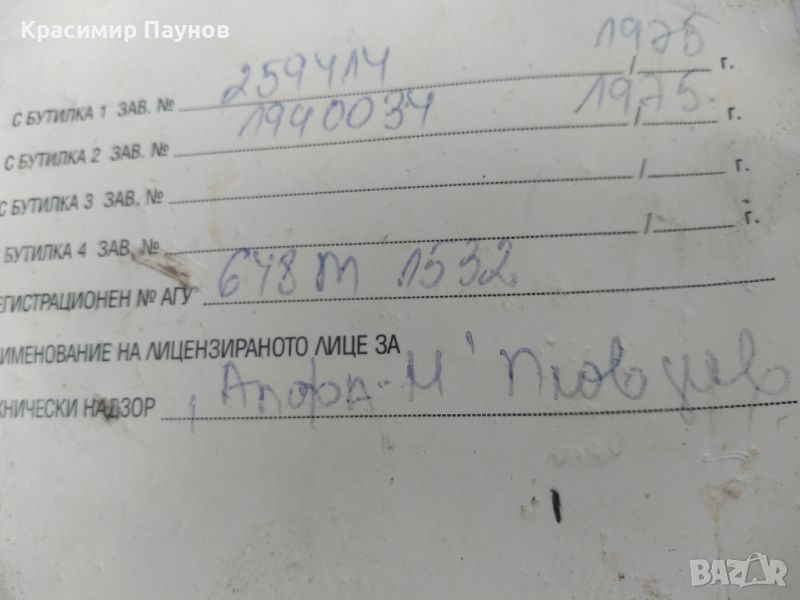 Красимир Паунов
С БУТИЛКА 1 ЗАВ. № 259414 / 1975 г.
С БУТИЛКА 2 ЗАВ. № 1940034 / 1975. г.
С БУТИЛКА 3 ЗАВ. № / г.
БУТИЛКА 4 ЗАВ. № / г.
ЕГИСТРАЦИОНЕН № АГУ 648 m 1532
ИМЕНОВАНИЕ НА ЛИЦЕНЗИРАНОТО ЛИЦЕ ЗА
ХНИЧЕСКИ НАДЗОР Пловдив
BAZAR